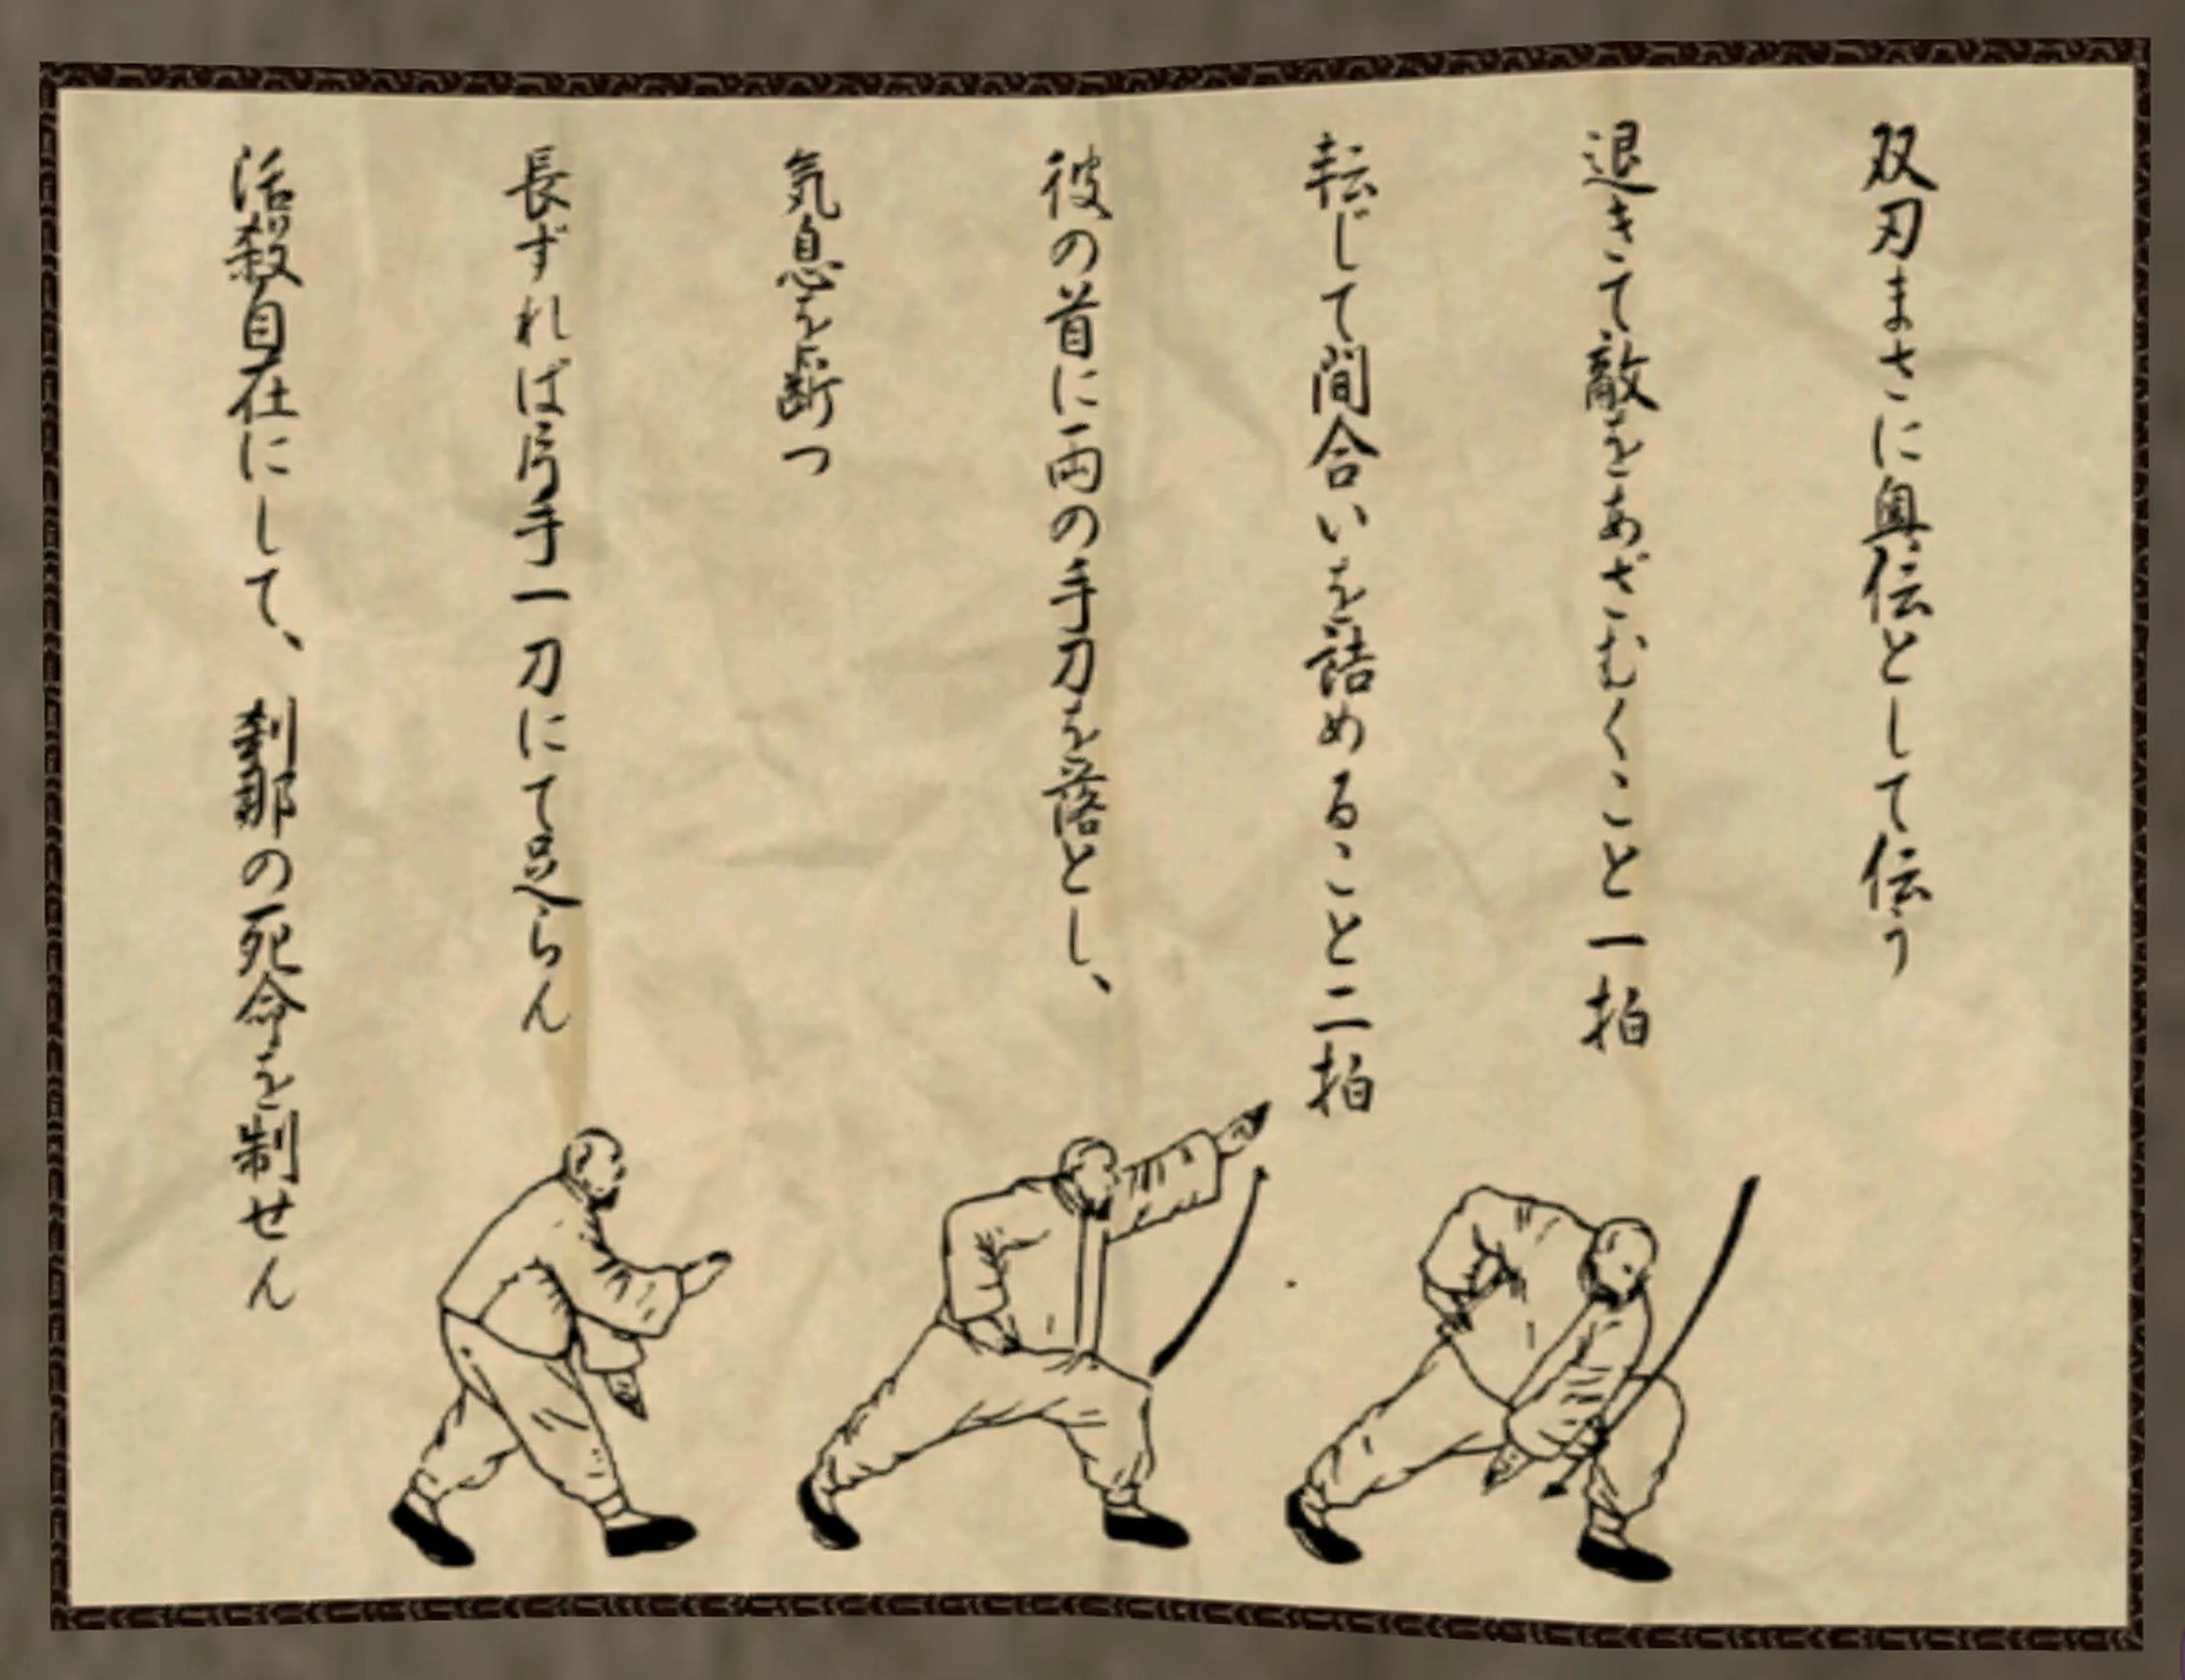 双刃まさに奥伝として伝う
退きて敵をあざむくこと一拍
転じて間合いを詰めること二拍
彼の首に両の手刀を落とし、
気息を断つ
長ずれば片手一刀にて足らん
活殺自在にして、刹那の死命を制せん